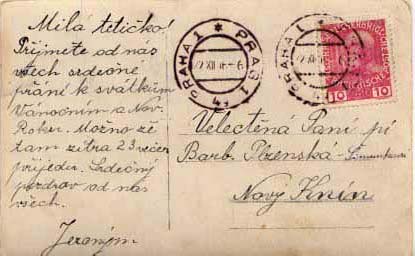 Milá tetičko!
Přijmete od nás
všech srdečné
přání k svátkům
Vánočním a Nov.
Roku. Možno že
tam zítra 23 večer
přijedu. Srdečný
pozdrav od nás
všech.
Jeroným.
PRAHA 1 * PRAG 1
22 XII 6
PRAHA 1
10 10
Velectěná Paní pí
Barb. Plzenská
Nový Knín